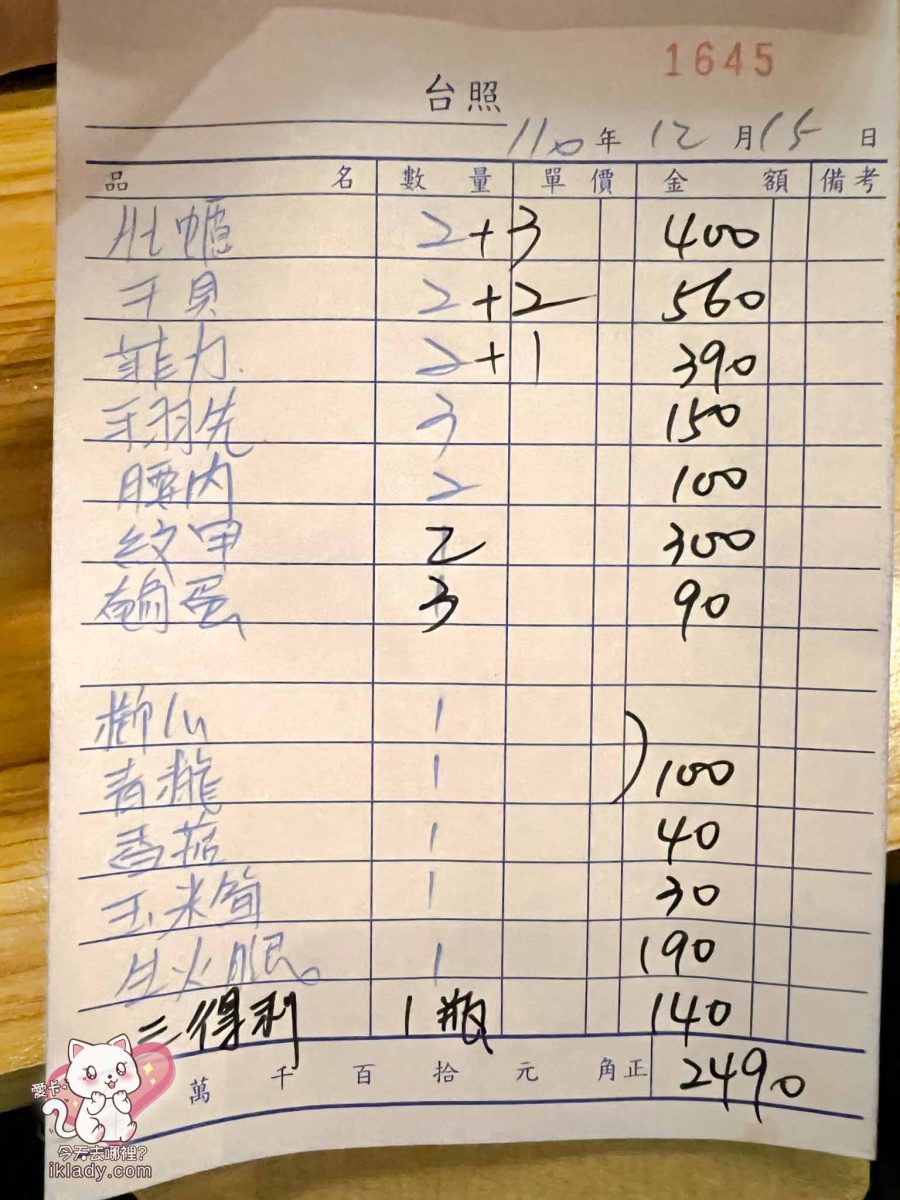 1645
台照
110年12月15日
品名 數量 單價 金額 備考
牡蠣 2+3 400
干貝 2+2 560
菲力 2+1 390
手羽先 3 150
腰內 2 100
紋甲 2 300
鵪蛋 3 90
1
1 100
香菇 1 40
玉米筍 1 30
生火腿 1 190
三得利 1瓶 140
萬 千 百 拾 元 角正 2490
愛卡
今天去哪裡?
iklady.com